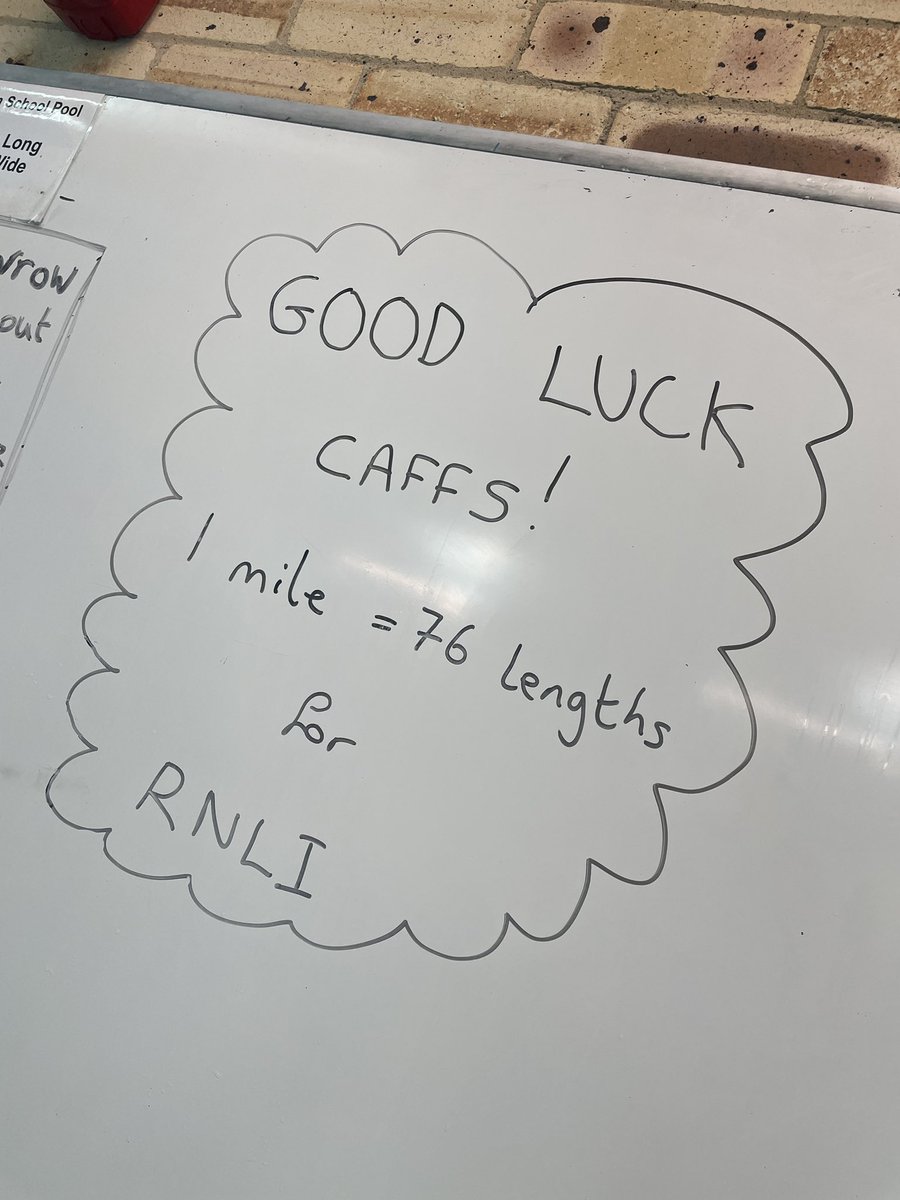 School Pool
Long
out
GOOD LUCK
CAFFS!
1 mile = 76 lengths
for
RNLI